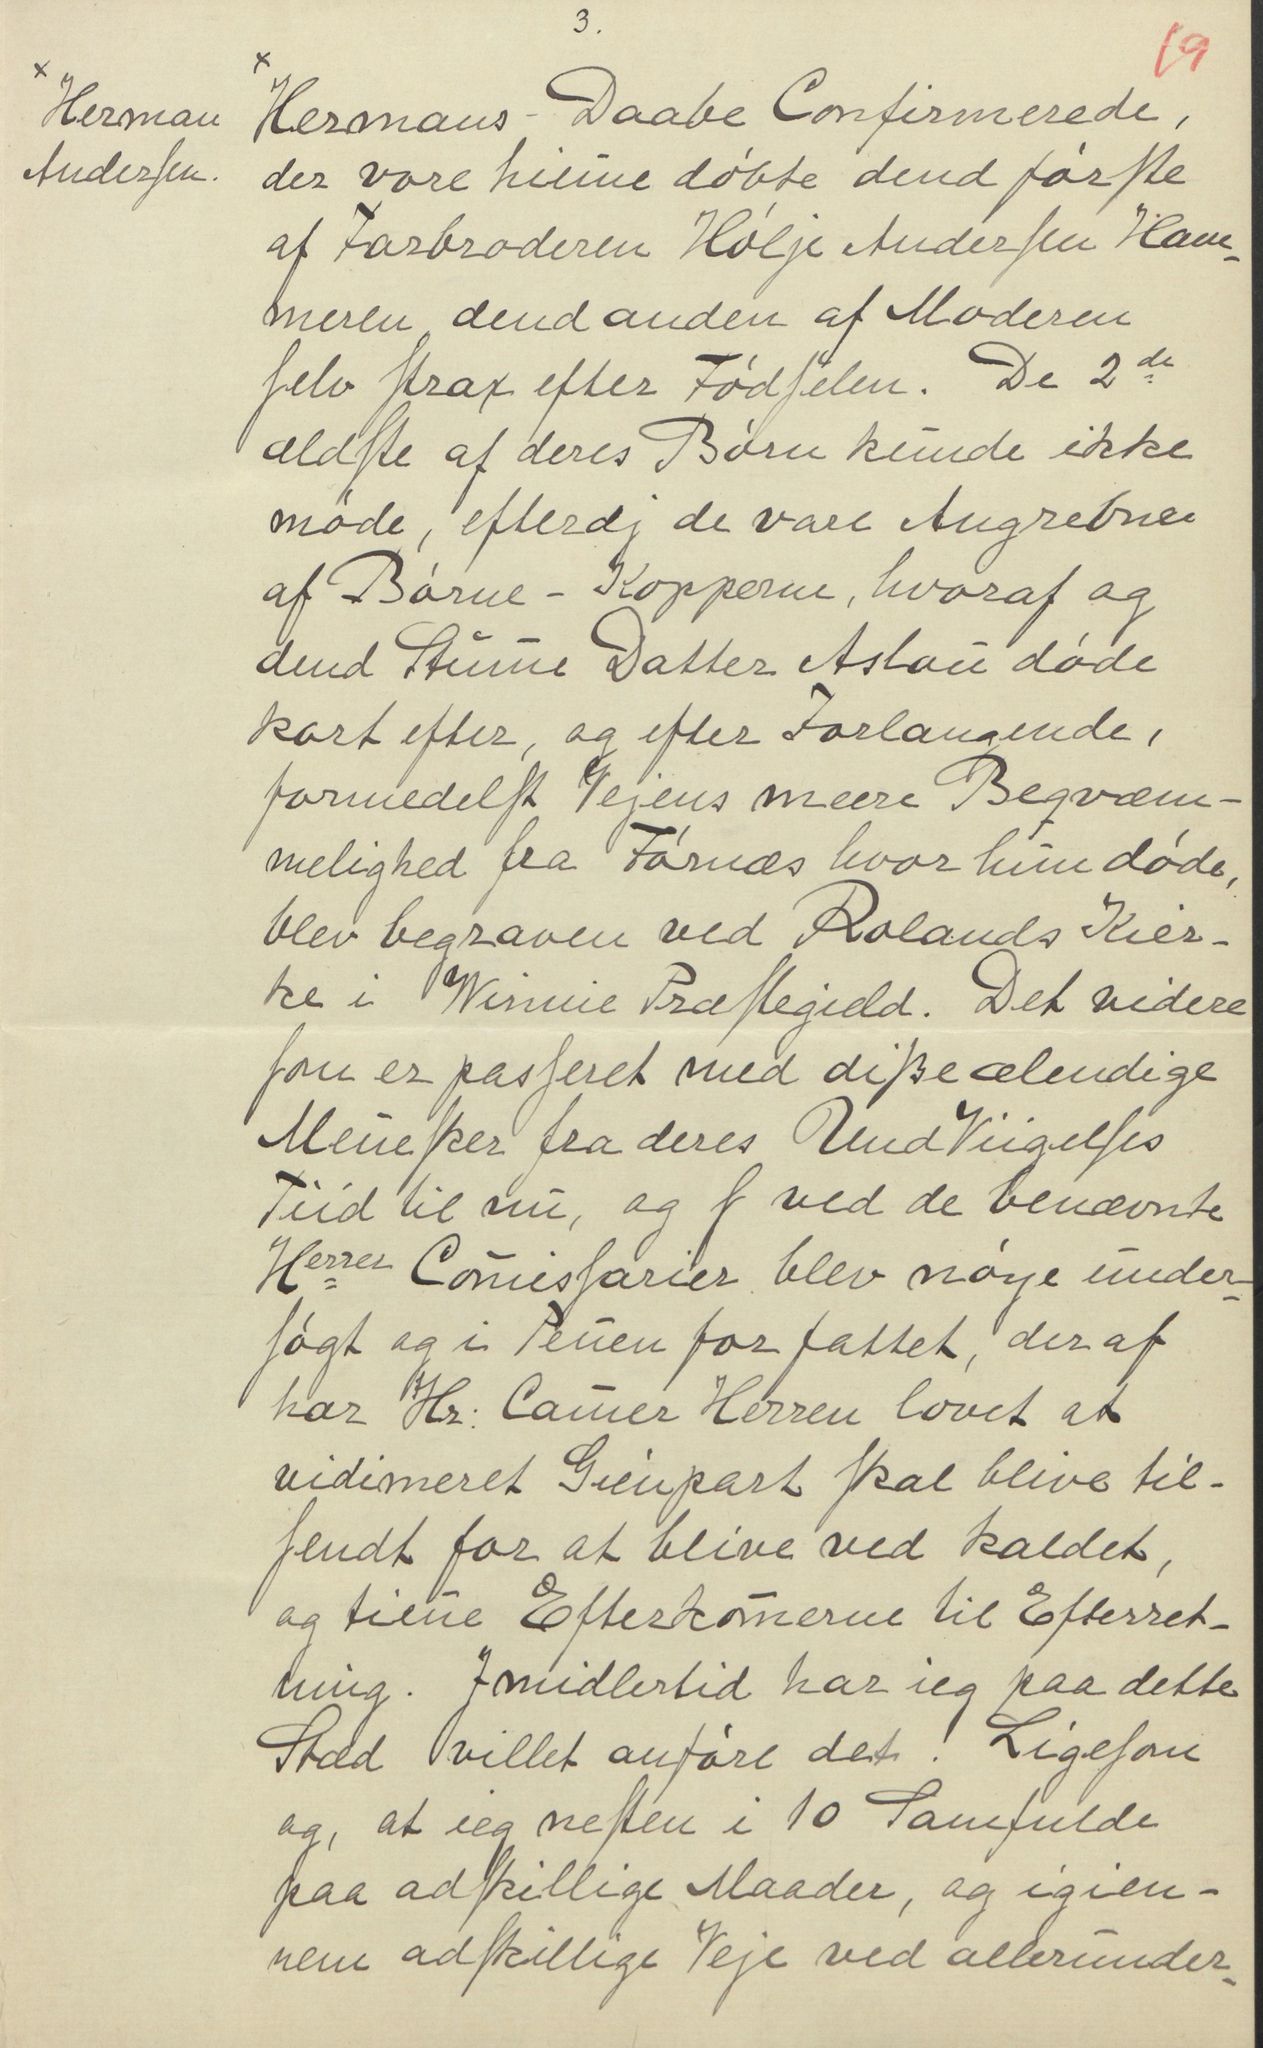 3.
69
× Herman
Andersen.
× Hermans - Daabe Confirmerede,
der vare hieme̅ døbte dend første
af Farbroderen Hølje Andersen Ham-
meren, dend anden af Moderen
selv strax efter Fødselen. De 2de
ældste af deres Børn kunde ikke
møde, efterdj de vare Angrebne
af Børne - Kopperne, hvoraf og
dend Stum̅e Datter Aslou døde
kort efter, og efter Forlangende,
formedelst Vejens meere Beqvæm-
melighed fra Førnæs hvor hun døde,
blev begraven ved Rolands Kier-
ke i Winnie Præstegield. Det videre
som er passeret med disse ælendige
Men̅esker fra deres UndViigelses
Tiid til nu, og s ved de benævnte
Herrer Com̅issarier blev nøye under-
søgt og i Pen̅en forfattet, der af
har Hr: Cam̅er Herren lovet at
vidimeret Gienpart skal blive til-
sendt for at blive ved kaldet,
og tien̅e Efterkom̅erne til Efterret-
ning. Imidlertid har ieg paa dette
Stæd villet anføre det. Ligesom
og, at ieg nesten i 10 Samfulde
paa adskillige Maader, og igien-
nem adskillige Veje ved allerunder-